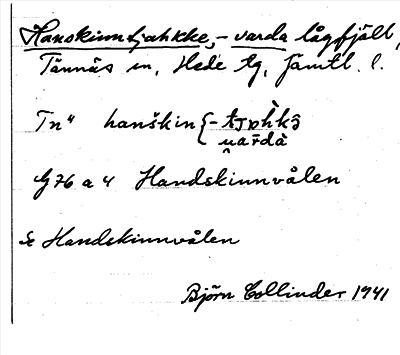 Hanskinntjahkke, - varda lågfjäll,
Tännäs sn, Hede tg, Jämtl. l.
Tn" hanškin {- tjɒhk
u̯arda
G 76 a 4 Handskinnvålen
Se Handskinnvålen
Björn Collinder 1941